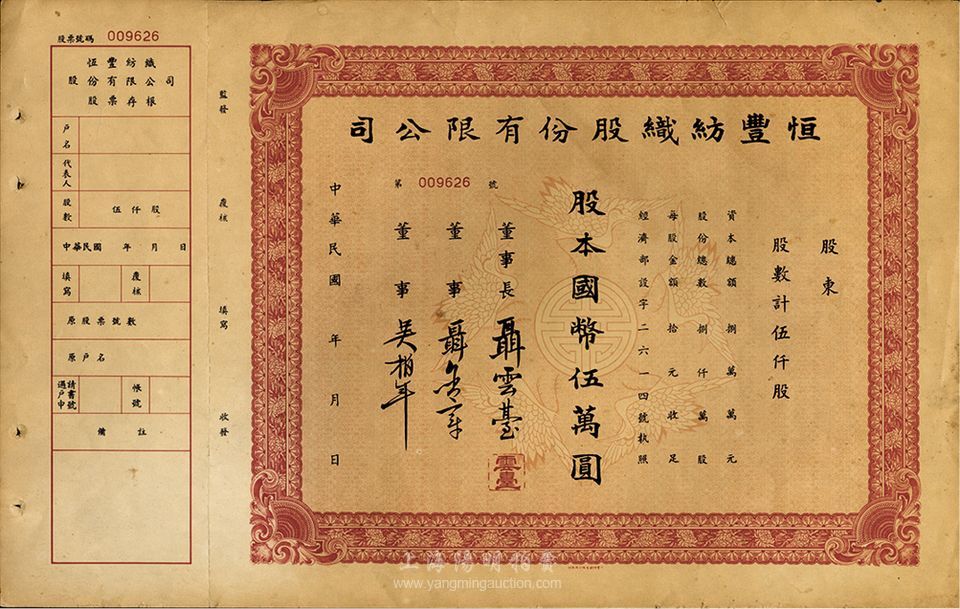 恒豐紡織股份有限公司
股東
股數計伍仟股
資本總額捌萬萬元
股份總數捌仟萬股
每股金額拾元收足
經濟部設字二六一四號執照
股本國幣伍萬圓
董事長 聶雲臺
雲臺
董事 聶
董事 吳柏年
第 009626 號
中華民國 年 月 日
監發 覆核 填寫 收發
股票號碼 009626
恒豐紡織
股份有限公司
股票存根
戶名
代表人
股數 伍仟股
中華民國 年 月 日
填寫 覆核
原股票號數
原戶名
過戶申請書號 帳號
備註
上海陽明拍賣
www.yangmingauction.com